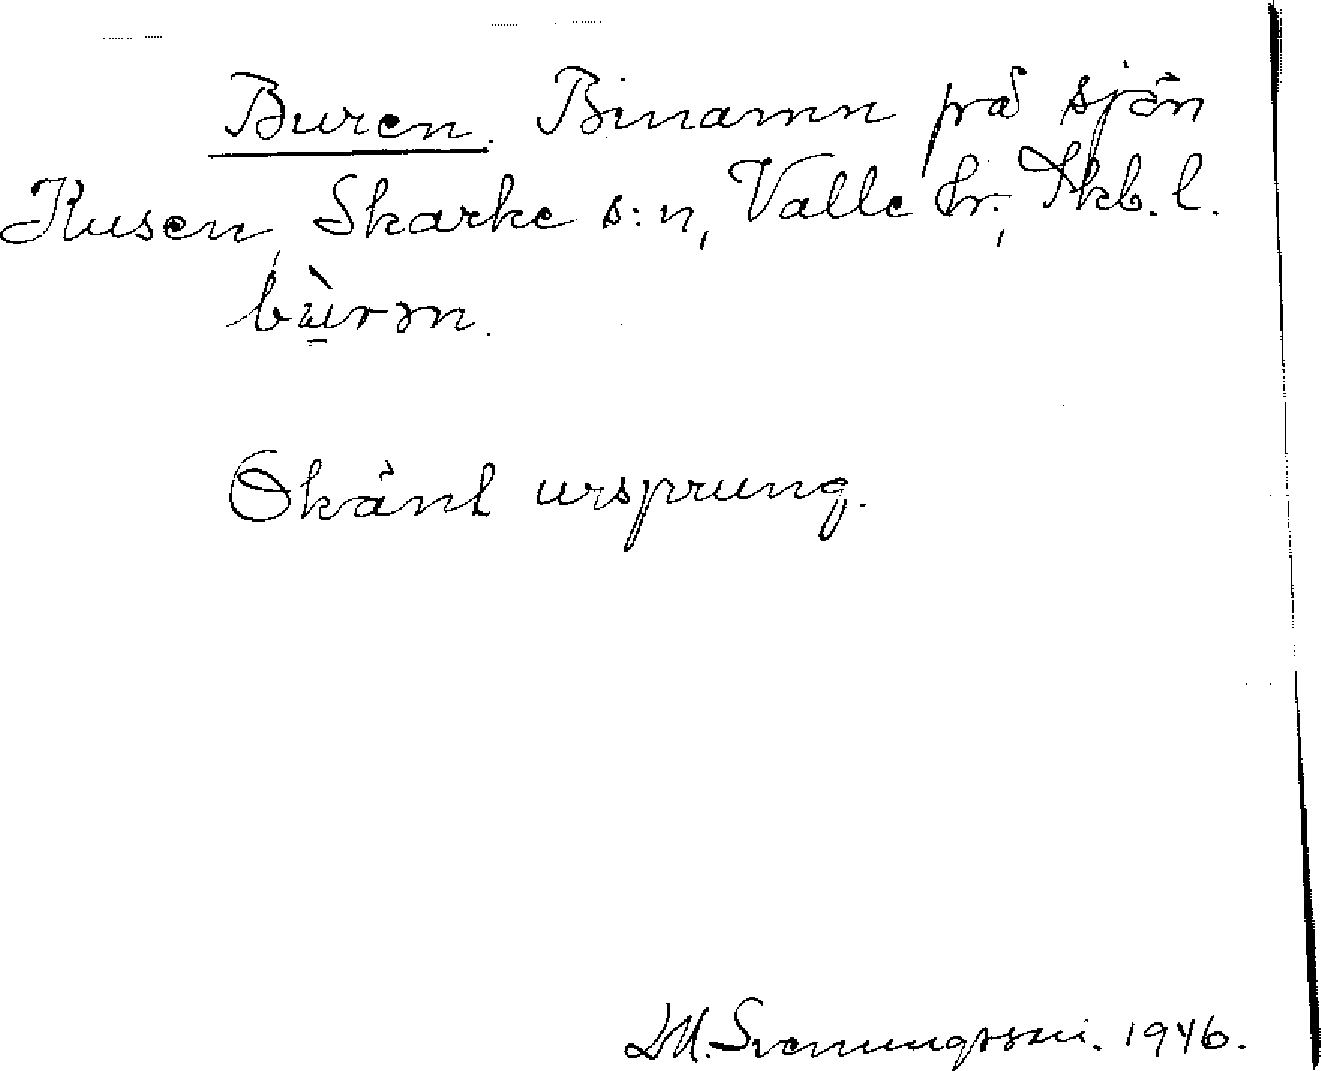 Buren. Binamn på sjön
Kusen, Skarke s:n, Valle hr., Skb. l.
bu̱̇̀rən.
Okänt ursprung.
Svenungsson. 1946.